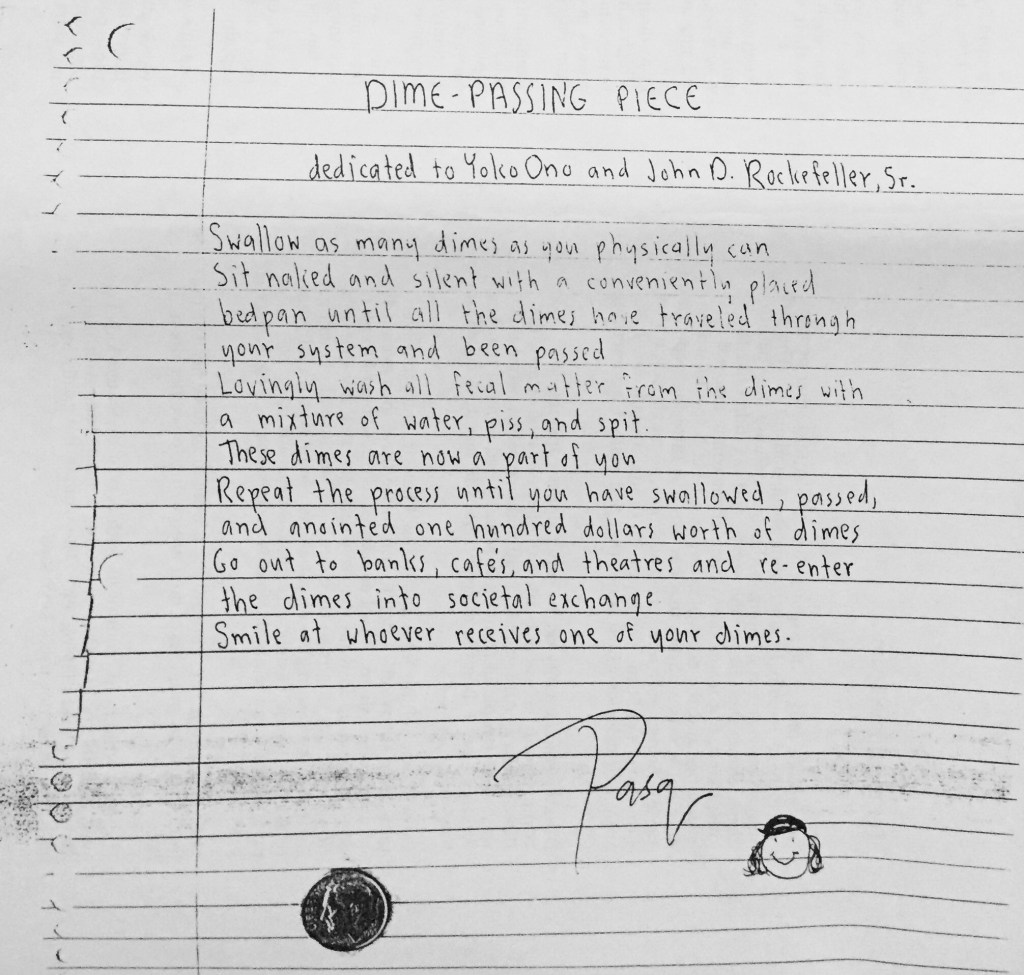 DIME-PASSING PIECE
dedicated to Yoko Ono and John D. Rockefeller, Sr.
Swallow as many dimes as you physically can
Sit naked and silent with a conveniently placed
bedpan until all the dimes have traveled through
your system and been passed
Lovingly wash all fecal matter from the dimes with
a mixture of water, piss, and spit.
These dimes are now a part of you
Repeat the process until you have swallowed, passed,
and anointed one hundred dollars worth of dimes
Go out to banks, cafés, and theatres and re-enter
the dimes into societal exchange.
Smile at whoever receives one of your dimes.
Pasq